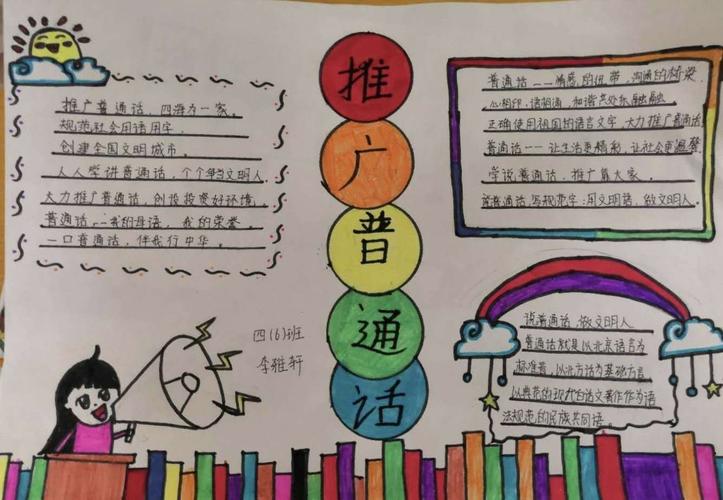 推广普通话
推广普通话，四海为一家。
规范社会用语用字，
创建全国文明城市。
人人学讲普通话，个个争当文明人
大力推广普通话，创设投资好环境。
普通话——我的母语，我的荣誉。
一口普通话，伴我行中华。
四(6)班
李雅轩
普通话——情感的纽带，沟通的桥梁
心相印，语相通，和谐共处乐融融
正确使用祖国的语言文字，大力推广普通话
普通话——让生活更精彩，让社会更温馨
学说普通话，推广靠大家。
普通话，写规范字：用文明语，做文明人。
说普通话，做文明人
普通话就是以北京语言为
标准音，以北方话为基础方言
以典范的现代白话文著作作为语
法规范的民族共同语。